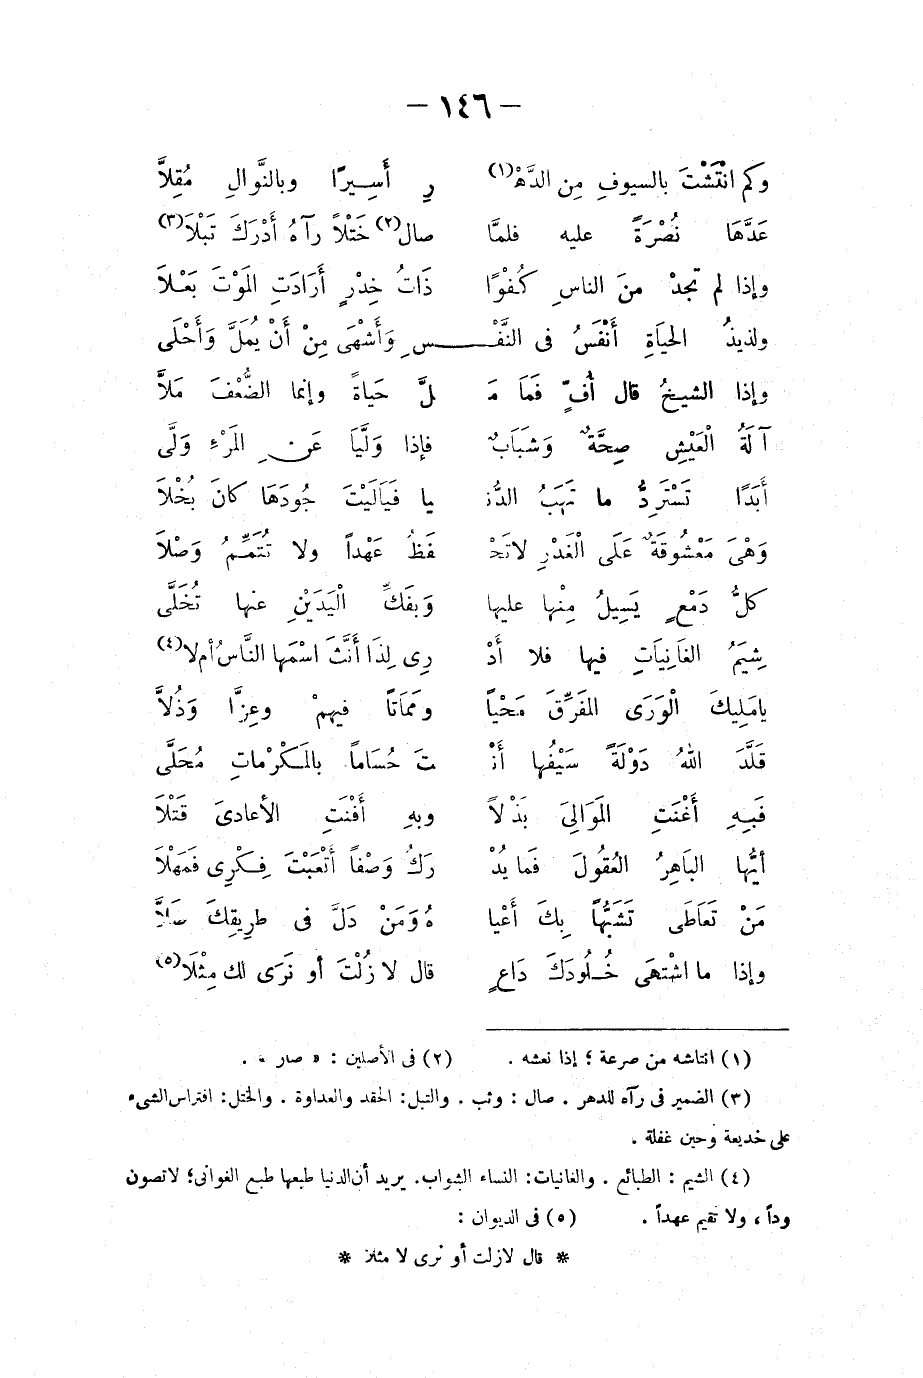 — ١٤٦ —
وكم انْتَشْتَ بالسيوفِ مِن الدَّهْ(١) رِ أَسِيرًا وبالنَّوالِ مُقِلاَّ
عَدَّهَا نُصْرَةً عليه فلمَّا صال(٢) خَتْلاً رآهُ أَدْرَكَ تَبْلاَ(٣)
وإذا لم تجدْ منَ الناسِ كُفْوًا ذَاتُ خِدْرٍ أَرَادَتِ المَوْتَ بَعْلاَ
ولذيذُ الحيَاةِ أَنْفَسُ فى النَّفْـــسِ وَأَشْهَى مِنْ أَنْ يُمَلَّ وَأَحْلَى
وإذا الشيخُ قال أُفٍّ فَمَا مَـ لَّ حياةً وإنما الضُّعْفَ مَلاَّ
آلَةُ الْعَيْشِ صِحَّةٌ وَشَبَابٌ فإذا وَلَّيَا عَنِ المَرْءِ وَلَّى
أَبَدًا تَسْتَرِدُّ ما تَهَبُ الدُّنـ يا فَيَالَيْتَ جُودَهَا كانَ بُخْلاَ
وَهْىَ مَعْشُوقَةٌ عَلَى الْغَدْرِ لاتَحْـ فَظُ عَهْداً ولا تُتَمِّمُ وَصْلاَ
كلُّ دَمْعٍ يَسِيلُ مِنْها عليها وَبِفَكِّ الْيَدَيْنِ عنها تُخَلَّى
شِيَمُ الغَانِيَاتِ فيها فلا أَدْ رِى لِذَا أَنَّثَ اسْمَها النَّاسُ أم لا(٤)
يامَلِيكَ الْوَرَى المفَرِّقَ مَحْياً ومَمَاتاً فيهمْ وعِزًّا وَذُلاَّ
قَلَّدَ اللهُ دَوْلَةً سَيْفُها أَنْـ تَ حُسَاماً بالمَكْرُماتِ مُحَلَّى
فَبِهِ أَغْنَتِ المَوَالِىَ بَذْلاً وبهِ أَفْنَتِ الأعادىَ قَتْلاَ
أيُّها البَاهِرُ العُقُولَ فَما يُدْ رَكُ وَصْفاً أَتْعَبْتَ فِكْرِى فَمَهْلاَ
مَنْ تَعَاطَى تَشَبُّهاً بِكَ أَعْيا هُ وَمَنْ دَلَّ فى طريقِكَ ضَلاَّ
وإذا ما اشْتَهَى خُلودَكَ داعٍ قال لا زُلْتَ أو نَرَى لك مِثْلاَ(٥)
(١) انتاشه من صرعة ؛ إذا نعشه . (٢) فى الأصلين : « صار » .
(٣) الضمير فى رآه للدهر . صال : وثب . والتبل: الحقد والعداوة . والختل: افتراس الشىء
على خديعة وحين غفلة .
(٤) الشيم : الطبائع . والغانيات: النساء الشواب. يريد أن الدنيا طبعها طبع الغوانى؛ لا تصون
وداً ، ولا تقيم عهداً . (٥) فى الديوان :
* قال لا زلت أو نرى لا مثلا *